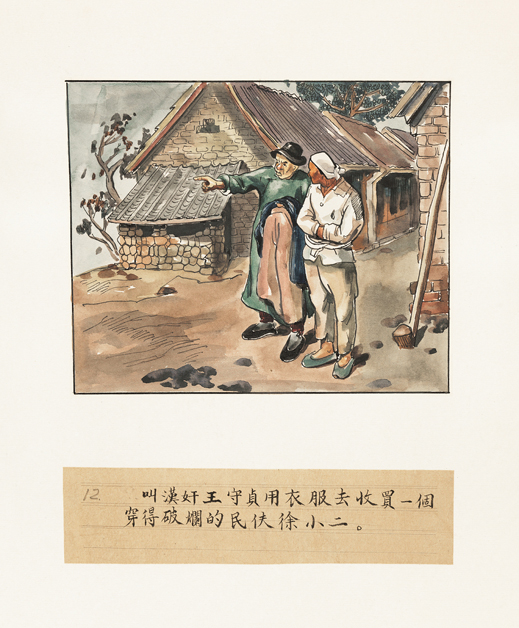 12. 叫漢奸王守貞用衣服去收買一個
穿得破爛的民伕徐小二。